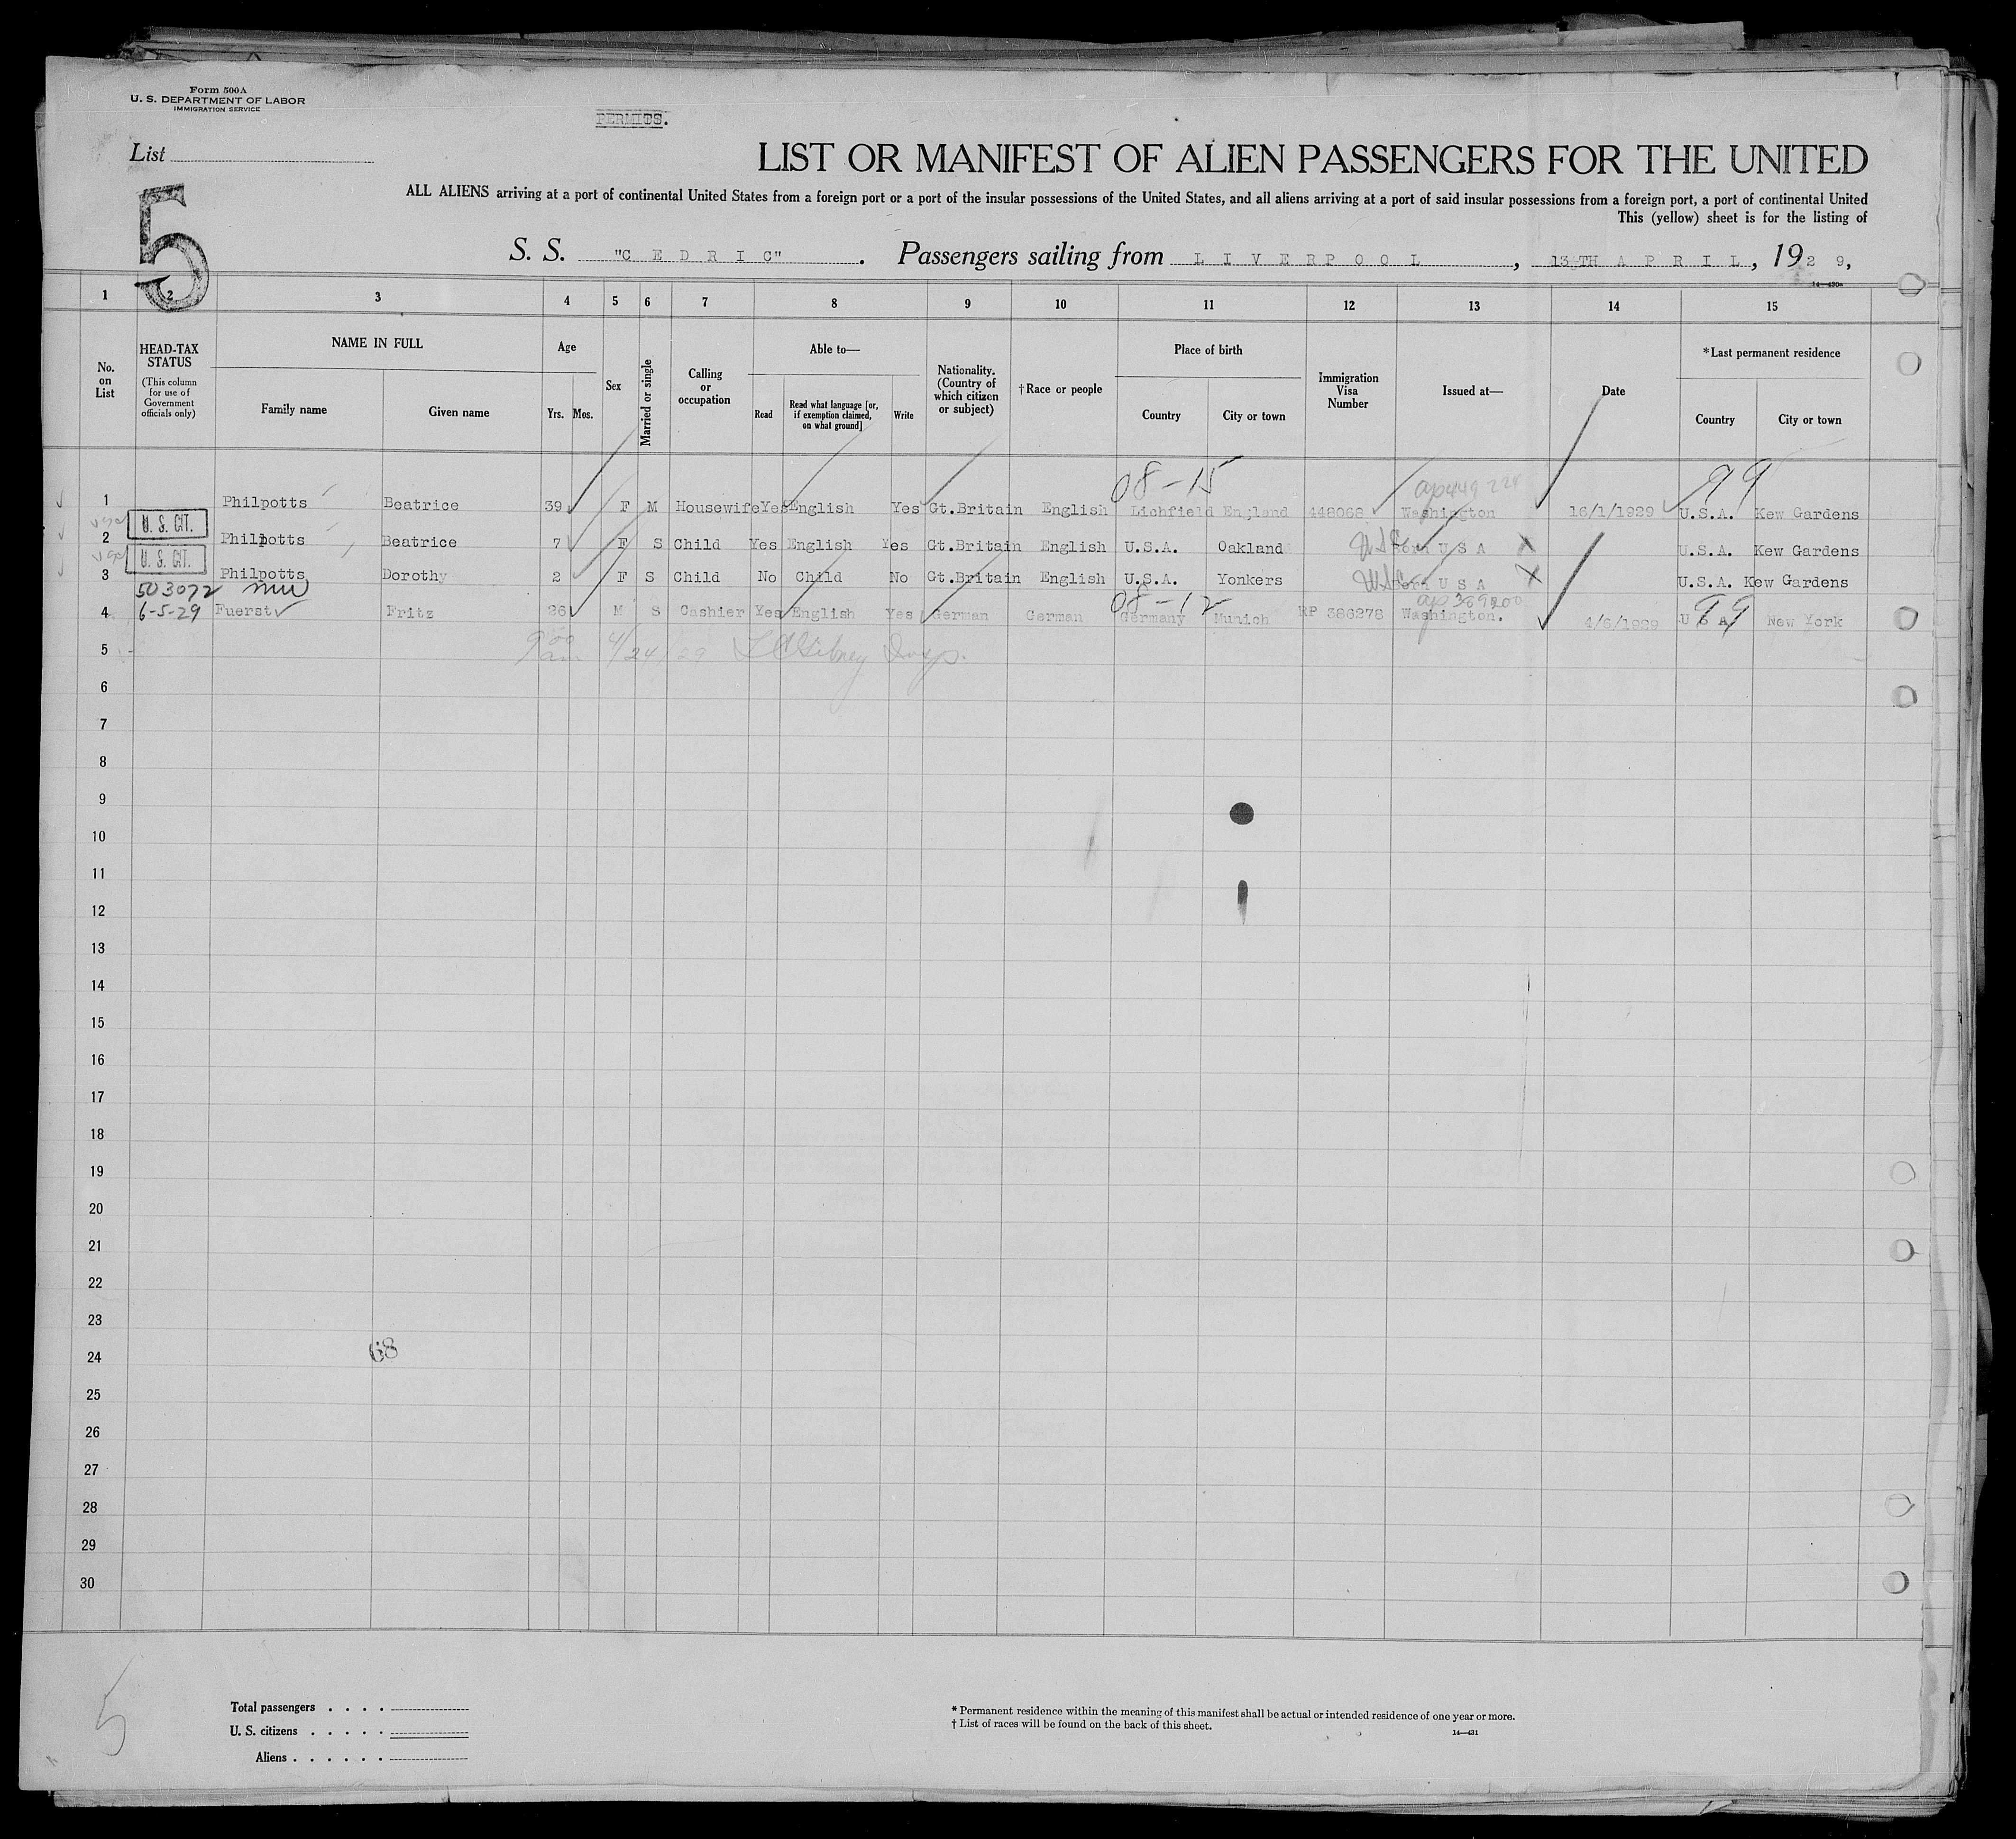 Form 500A
U. S. DEPARTMENT OF LABOR
IMMIGRATION SERVICE
PERMITS.
List
5
LIST OR MANIFEST OF ALIEN PASSENGERS FOR THE UNITED
ALL ALIENS arriving at a port of continental United States from a foreign port or a port of the insular possessions of the United States, and all aliens arriving at a port of said insular possessions from a foreign port, a port of continental United
This (yellow) sheet is for the listing of
S. S. "C E D R I C" . Passengers sailing from L I V E R P O O L , 13TH A P R I L , 192 9,
14—430a
1 2 3 4 5 6 7 8 9 10 11 12 13 14 15
No. on List
HEAD-TAX STATUS
(This column for use of Government officials only)
NAME IN FULL
Family name Given name
Age
Yrs. Mos.
Sex
Married or single
Calling or occupation
Able to—
Read Read what language [or, if exemption claimed, on what ground] Write
Nationality. (Country of which citizen or subject)
†Race or people
Place of birth
Country City or town
Immigration Visa Number
Issued at—
Date
*Last permanent residence
Country City or town
08-15 99
1 Philpotts Beatrice 39 F M Housewife Yes English Yes Gt.Britain English Lichfield England 448068 Washington 16/1/1929 U.S.A. Kew Gardens
U. S. CIT.
2 Philpotts Beatrice 7 F S Child Yes English Yes Gt.Britain English U.S.A. Oakland U S A U.S.A. Kew Gardens
U. S. CIT.
3 Philpotts Dorothy 2 F S Child No Child No Gt.Britain English U.S.A. Yonkers U S A U.S.A. Kew Gardens
503072
08-12 99
4 6-5-29 Fuerst Fritz 26 M S Cashier Yes English Yes German German Germany Munich RP 386278 Washington. 4/6/1929 U S A New York
5 4/24/29
6
7
8
9
10
11
12
13
14
15
16
17
18
19
20
21
22
23
24 68
25
26
27
28
29
30
5
Total passengers . . . .
U. S. citizens . . . . .
Aliens . . . . . .
* Permanent residence within the meaning of this manifest shall be actual or intended residence of one year or more.
† List of races will be found on the back of this sheet.
14—431